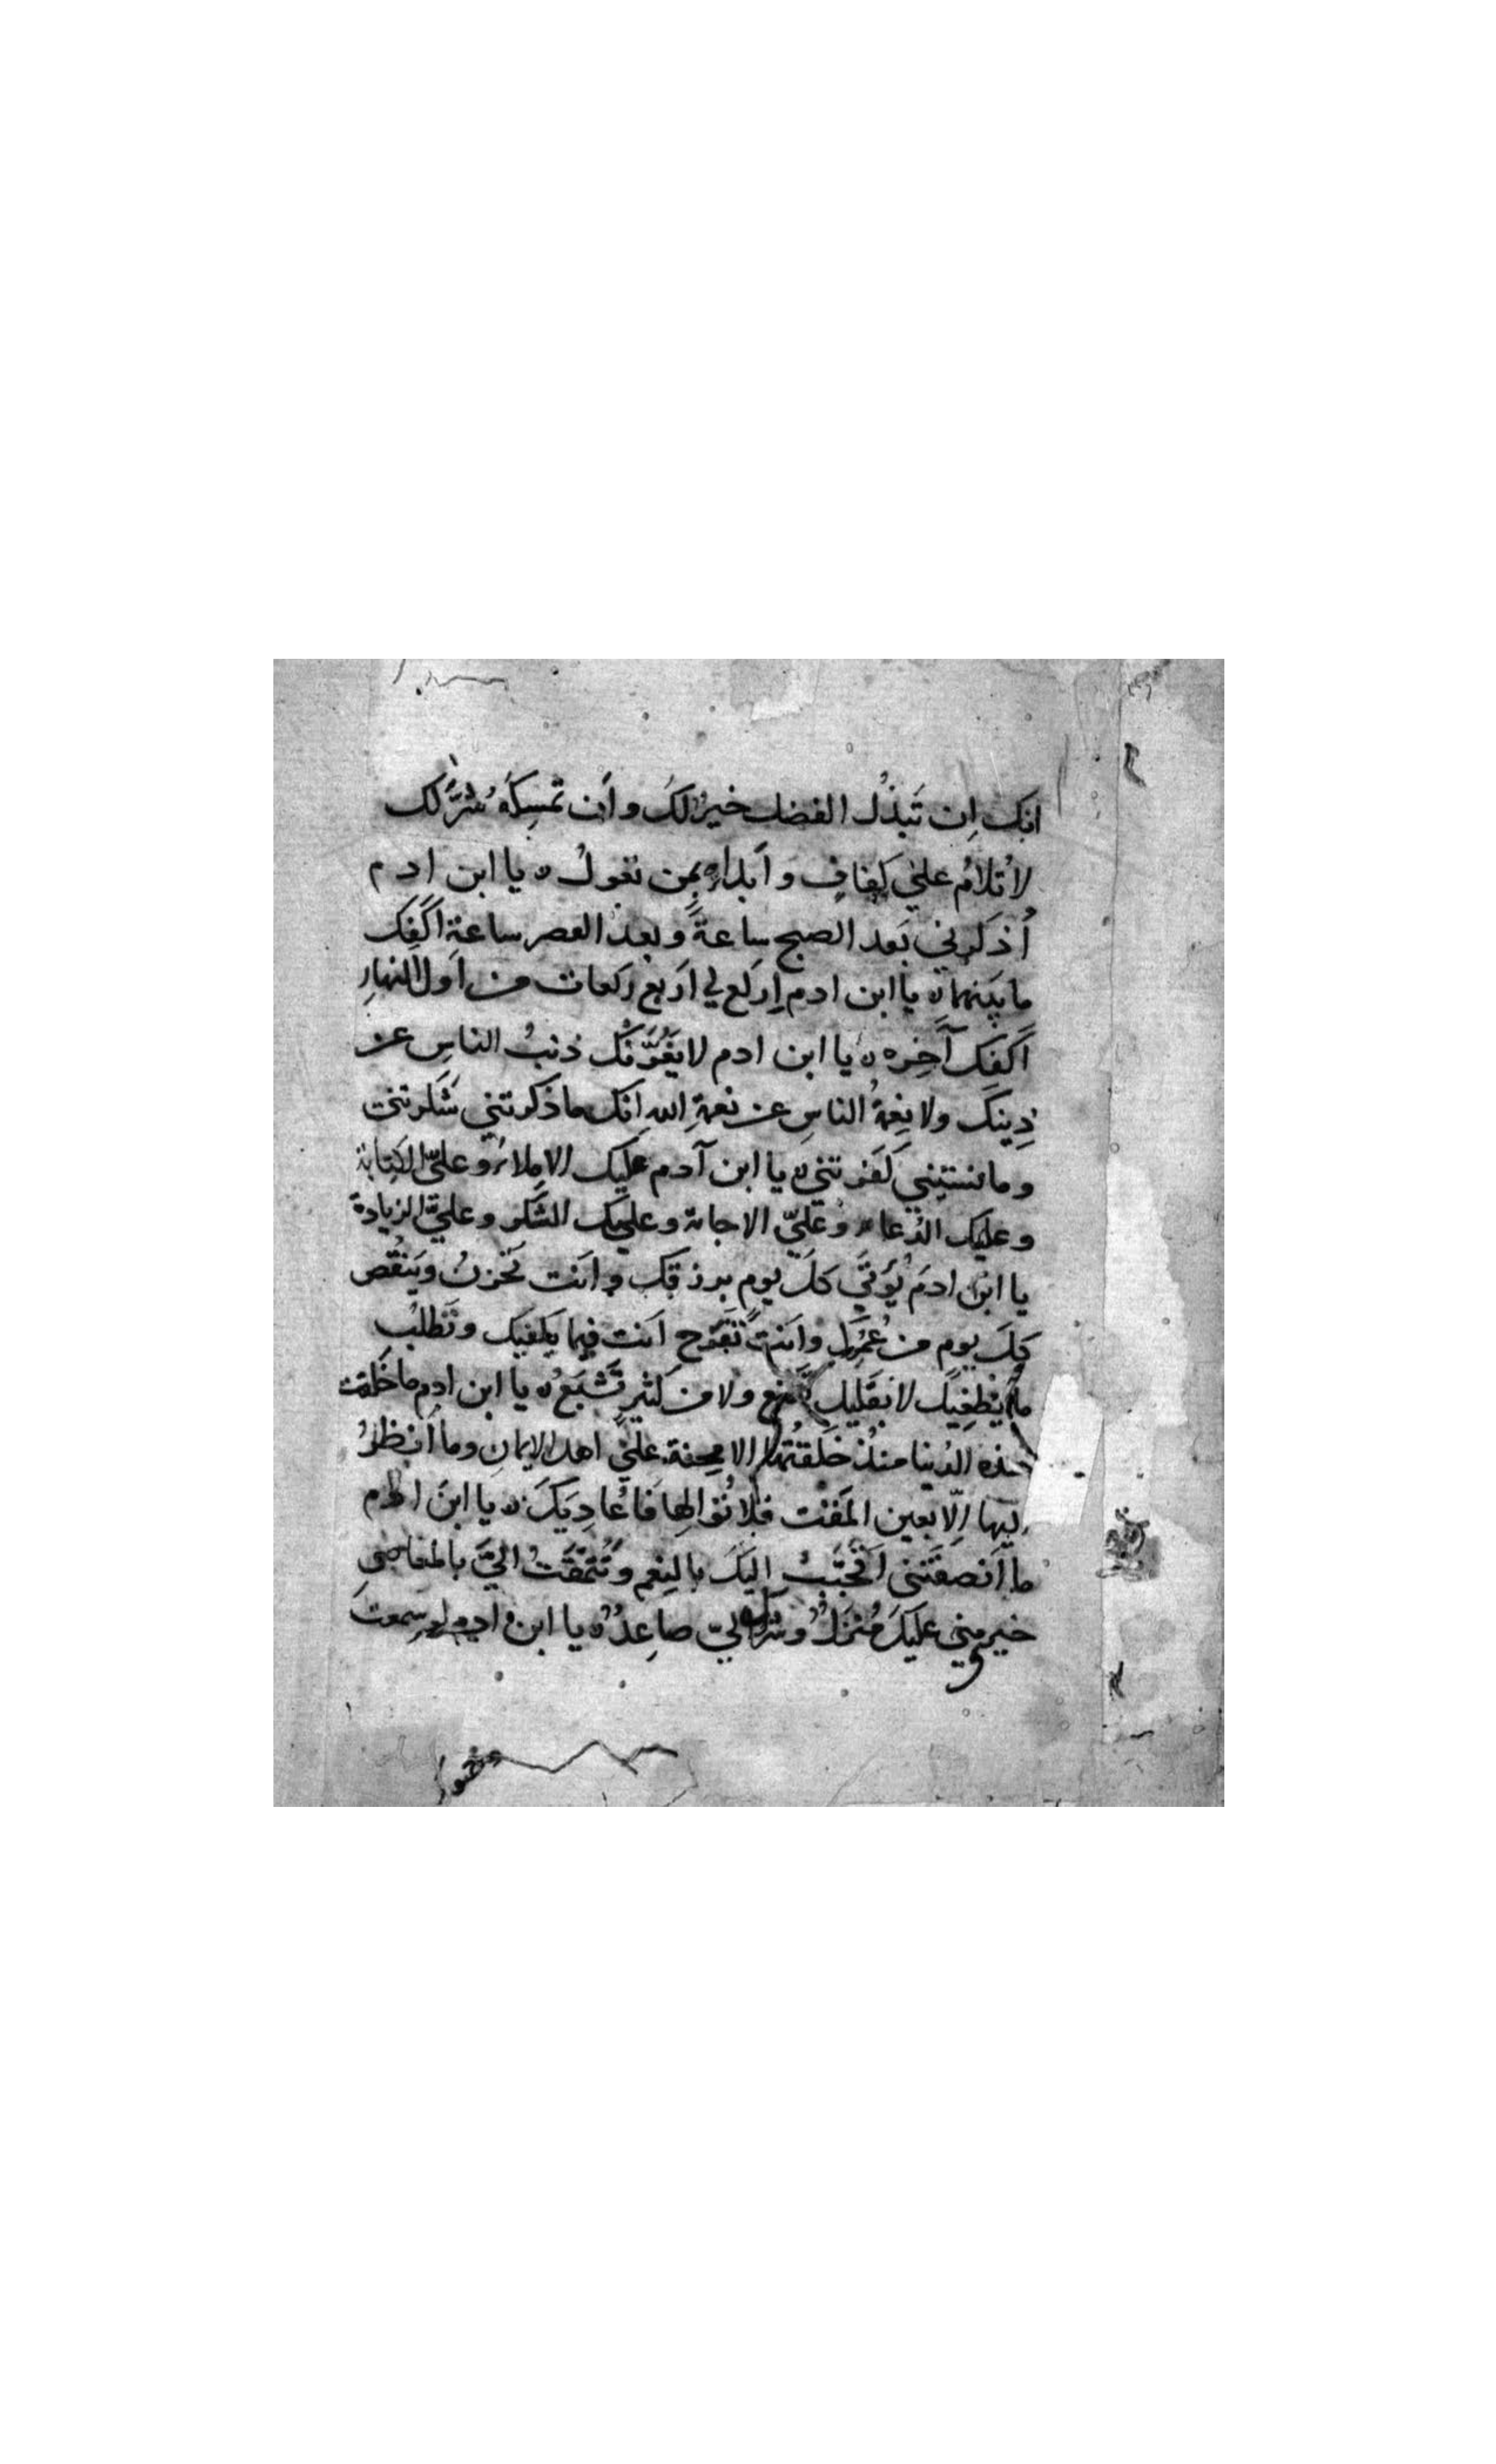 انك اِن تَبذُل الفضل خيرٌ لكَ وأن تمسِكَهُ شرٌّ لك
لا تُلامُ علي كفافٍ وأبدا بِمن تعولُ ه يا ابن ادم
اُذكرني بَعد الصبح ساعةً وبعد العصر ساعة اكفِك
ما بينهما ه يا ابن ادم اِركع لي اربع ركعات من اول النهارِ
اَكفِكَ آخِره ه يا ابن ادم لا يَغُرَّنَّك ذنبُ الناسِ عن
ذِينِكَ ولا نِعمةُ الناسِ عن نعمةِ الله انك ما ذكرتني شَكرتني
وما نسيتني كَفرتني ه يا ابن آدم عليك الاملاءُ وعليّ الكِتابة
وعليك الدُعاء وعليّ الاجابة وعليك الشكر وعليّ الزيادة
يا ابن ادمَ يُؤتَي كلَ يوم برزقك وانت تَحْزنُ ويَنقُص
كلَ يوم من عُمُرِك وانتَ تَفرح انت فيما يكفيك وتَطلبُ
ما يُطغيك لا بقليل تقنع ولا من كثيرٍ تَشبَعُ ه يا ابن ادم ما خَلَقت
هذه الدُنيا منذُ خَلَقتُها الا محنة علي اهل الايمانِ وما اَنظرُ
اليها اِلّا بعين المَقت فلا تُوالِها فاُعادِيَكَ ه يا ابنَ ادم
ما اَنصفتَني اَتحَبَّبُ اليكَ بالنِعم وتَتَمَقَّتُ اليَّ بالمعاصي
خيرِي عليكَ مُنزَلٌ وشرك اليّ صاعِدٌ ه يا ابن ادم لو سمعتَ